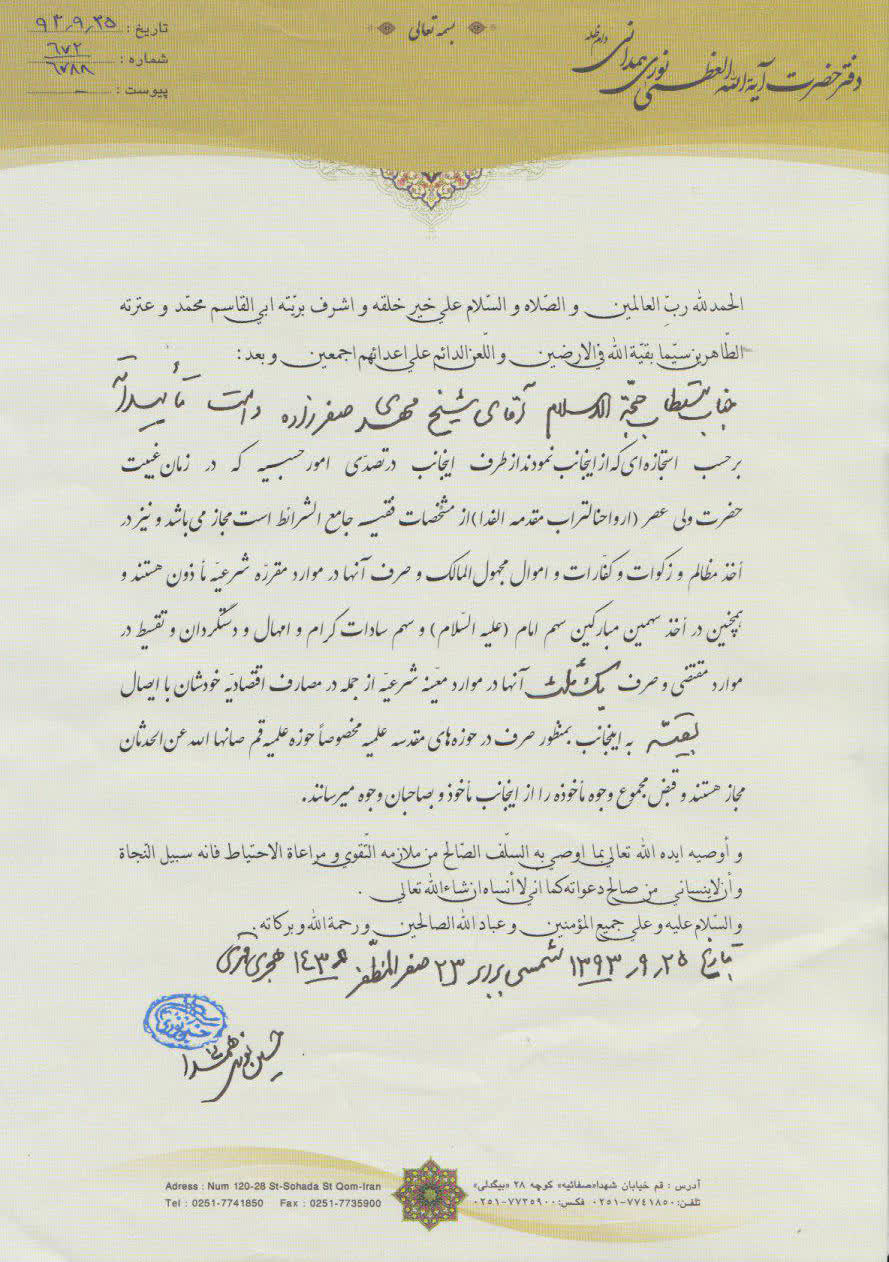 بسمه تعالی
دفتر حضرت آیة الله العظمی نوری همدانی دام ظله
تاریخ : ۹۳٫۹٫۲۵
شماره : ۶۷۲
۶۷۸۸
پیوست : —
الحمدلله ربِّ العالمین و الصّلاه و السّلام علی خیر خلقه و اشرف بریّته ابی القاسم محمّد و عترته
الطّاهرین سیّما بقیّة الله فی الارضین و اللّعن الدائم علی اعدائهم اجمعین و بعد :
جناب مستطاب حجّة الاسلام آقای شیخ مهدی صفرزاده دامت تأییداته
برحسب استجازه‌ای که از اینجانب نمودند از طرف اینجانب در تصدّی امور حسبیه که در زمان غیبت
حضرت ولی عصر (ارواحنا لتراب مقدمه الفدا) از مشخّصات فقیه جامع الشرائط است مجاز می‌باشد و نیز در
أخذ مظالم و زکوات و کفّارات و اموال مجهول المالک و صرف آنها در موارد مقرّره شرعیّه مأذون هستند و
همچنین در أخذ سهمین مبارکین سهم امام (علیه السّلام) و سهم سادات کرام و امهال و دستگردان و تقسیط در
موارد مقتضی و صرف یک ثلث آنها در موارد معیّنه شرعیّه از جمله در مصارف اقتصادیّه خودشان با ایصال
بقیّه به اینجانب بمنظور صرف در حوزه‌های مقدسه علمیه مخصوصاً حوزه علمیه قم صانها الله عن الحدثان
مجاز هستند و قبض مجموع وجوه مأخوذه را از اینجانب مأخوذ و بصاحبان وجوه میرسانند.
و أوصیه ایده الله تعالی بما اوصی به السلّف الصّالح من ملازمه التّقوی و مراعاة الاحتیاط فانه سبیل النّجاة
و أن لا ینسانی من صالح دعواته کما انی لا أنساه ان شاء الله تعالی .
و السّلام علیه و علی جمیع المؤمنین و عباد الله الصالحین و رحمة الله و برکاته.
بتاریخ ۲۵٫۹٫۱۳۹۳ شمسی برابر ۲۳ صفر المظفّر ۱۴۳۶ هجری قمری
حسین نوری همدانی
حسین نوری
آدرس : قم خیابان شهدا«صفائیه» کوچه ۲۸ «بیگدلی»
تلفن: ۷۷۴۱۸۵۰-۰۲۵۱ فکس: ۷۷۳۵۹۰۰-۰۲۵۱
Adress : Num 120-28 St-Sohada St Qom-Iran
Tel : 0251-7741850 Fax : 0251-7735900